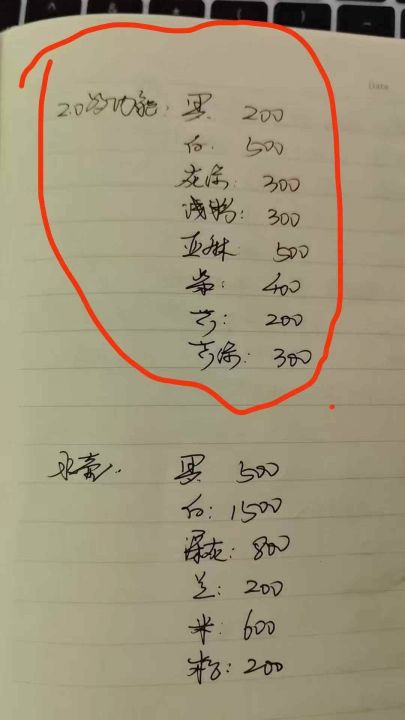 Date
2.0多功能: 黑 200
白: 500
灰涤: 300
浅粉: 300
亚麻 500
紫: 400
兰: 200
兰涤: 300
黑 500
白: 1500
深灰: 800
兰: 200
米: 600
粉: 200